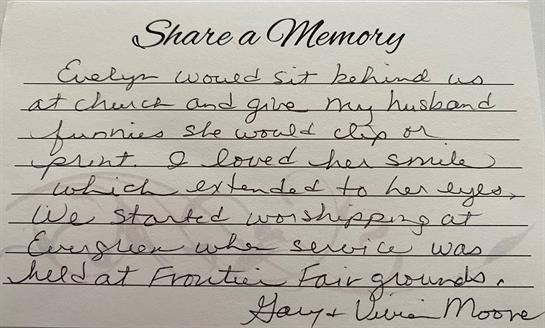 Share a Memory
Evelyn would sit behind us
at church and give my husband
funnies she would clip or
print. I loved her smile
which extended to her eyes.
We started worshipping at
Evergreen when service was
held at Frontier Fairgrounds.
Gary + Vivian Moore